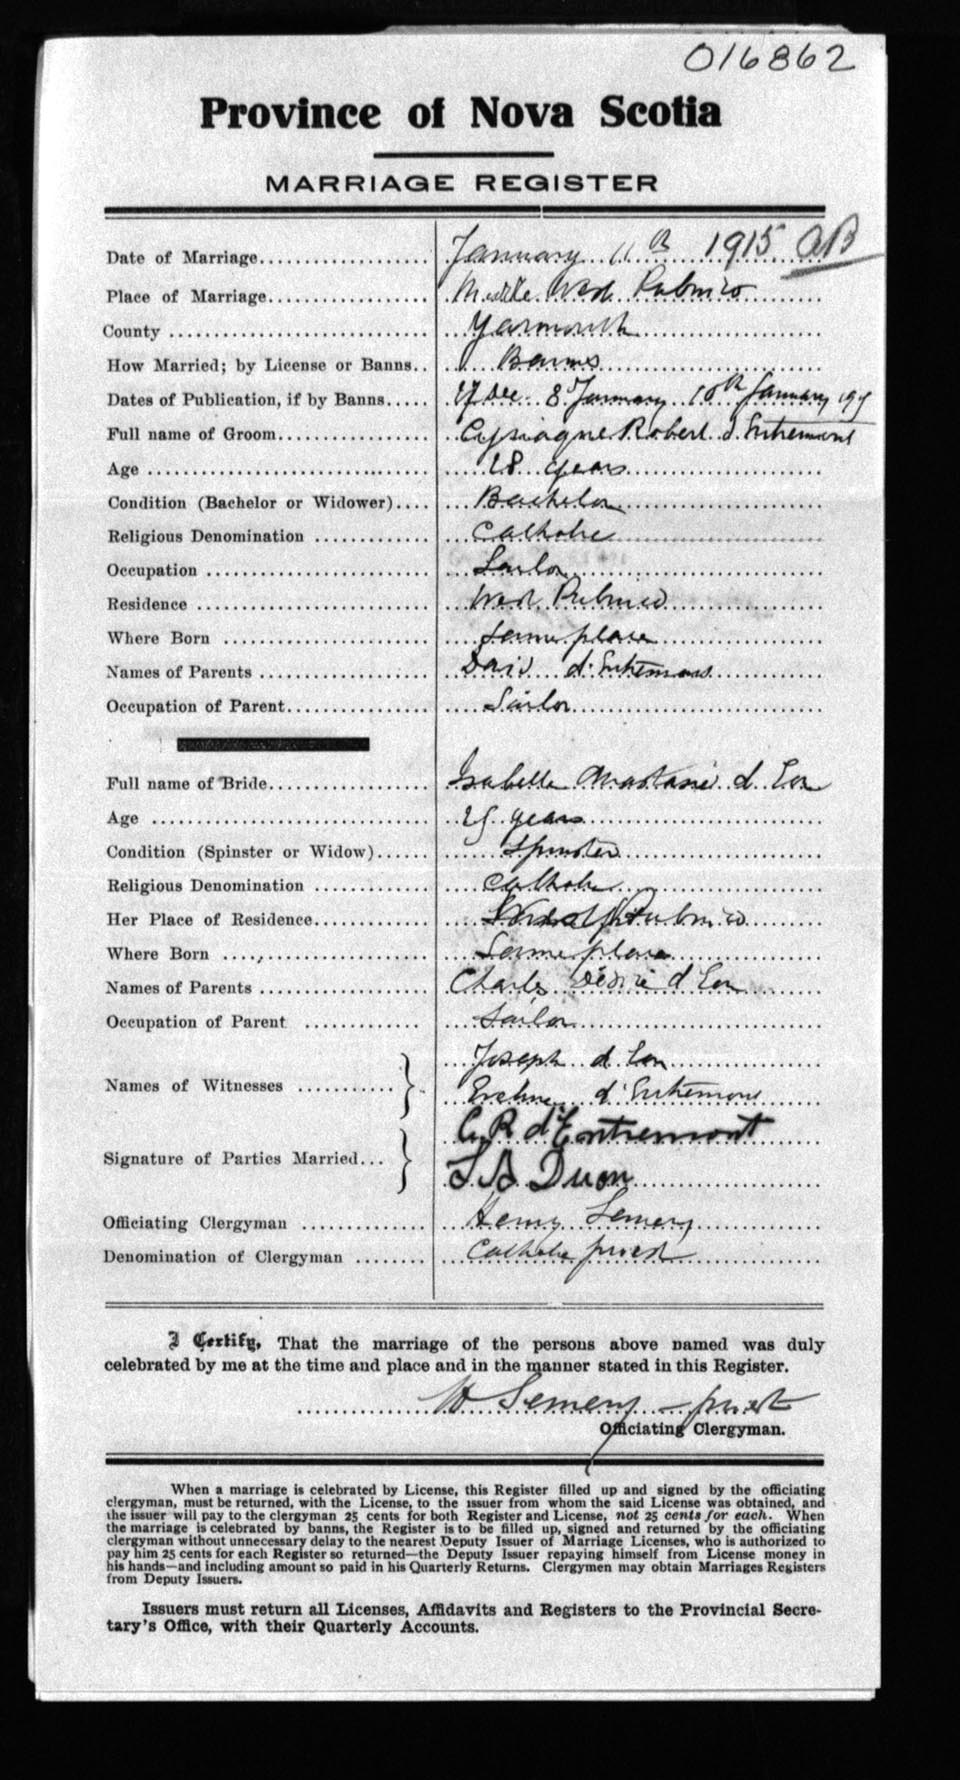 016862
Province of Nova Scotia
MARRIAGE REGISTER
Date of Marriage January 11th 1915
Place of Marriage Middle West Pubnico
County Yarmouth
How Married; by License or Banns Banns
Dates of Publication, if by Banns 8 January 10th January
Full name of Groom Robert d'Entremont
Age 28 years
Condition (Bachelor or Widower) Bachelor
Religious Denomination Catholic
Occupation Sailor
Residence West Pubnico
Where Born Same place
Names of Parents David d'Entremont
Occupation of Parent Sailor
Full name of Bride Isabella d'Eon
Age years
Condition (Spinster or Widow) Spinster
Religious Denomination Catholic
Her Place of Residence Pubnico
Where Born Same place
Names of Parents Charles Désiré d'Eon
Occupation of Parent Sailor
Joseph d'Eon
Names of Witnesses
d'Entremont
C. R d'Entremont
Signature of Parties Married
Duon
Officiating Clergyman Henry
Denomination of Clergyman Catholic priest
I Certify, That the marriage of the persons above named was duly
celebrated by me at the time and place and in the manner stated in this Register.
H priest
Officiating Clergyman.
When a marriage is celebrated by License, this Register filled up and signed by the officiating
clergyman, must be returned, with the License, to the issuer from whom the said License was obtained, and
the issuer will pay to the clergyman 25 cents for both Register and License, not 25 cents for each. When
the marriage is celebrated by banns, the Register is to be filled up, signed and returned by the officiating
clergyman without unnecessary delay to the nearest Deputy Issuer of Marriage Licenses, who is authorized to
pay him 25 cents for each Register so returned—the Deputy Issuer repaying himself from License money in
his hands—and including amount so paid in his Quarterly Returns. Clergymen may obtain Marriages Registers
from Deputy Issuers.
Issuers must return all Licenses, Affidavits and Registers to the Provincial Secre-
tary's Office, with their Quarterly Accounts.